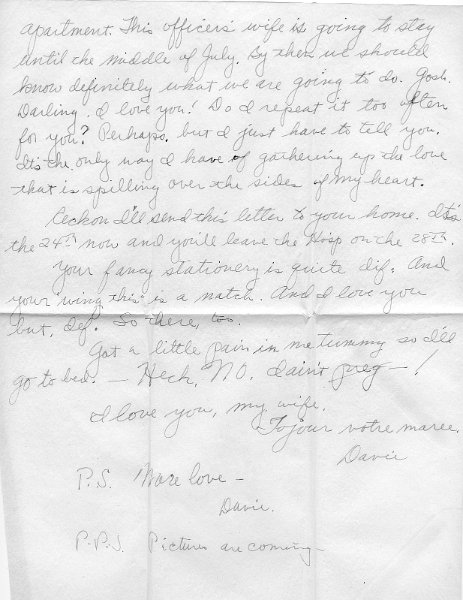 apartment. This officers' wife is going to stay
until the middle of July. By then we should
know definitely what we are going to do. Gosh.
Darling, I love you! Do I repeat it too often
for you? Perhaps, but I just have to tell you.
It's the only way I have of gathering up the love
that is spilling over the sides of my heart.
Reckon I'll send this letter to your home. It's
the 24th now and you'll leave the Hosp on the 28th.
Your fancy stationery is quite dif. And
your wing this is a natch. And I love you
but, def. So there, too.
Got a little pain in me tummy so I'll
go to bed. — Heck, NO. I ain't preg — !
I love you, my wife.
Tojour votre maree.
Davie
P.S. More love —
Davie.
P.P.S. Pictures are coming —